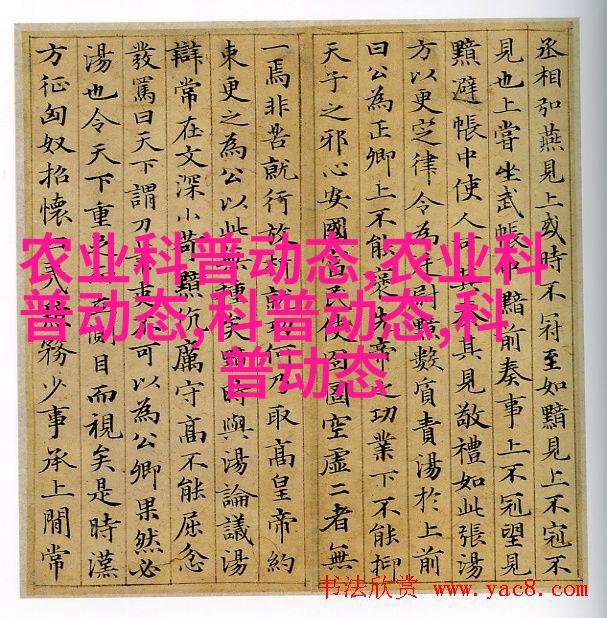 丞相弘燕見上或時不冠至如黯見上不冠不
見也上嘗坐武帳中黯前奏事上不冠望見
黯避帳中使人可其奏其見敬禮如此張湯
方以更定律令為廷尉黯數質責湯於上前
曰公為正卿上不能襃先帝之功業下不能抑
天子之邪心安國富民使囹圄空虛二者無
一焉非苦就行放析就功何乃取高皇帝約
束更之為公以此無種矣黯時與湯論議湯
辯常在文深小苛黯伉厲守高不能屈忿
發罵曰天下謂刀筆吏不可以為公卿果然必
湯也令天下重足而立側目而視矣是時漢
方征匈奴招懷四夷黯務少事承上間常
农业科普动态,农业科
普动态,科普动态,科
普动态
书法欣赏 www.yac8.com